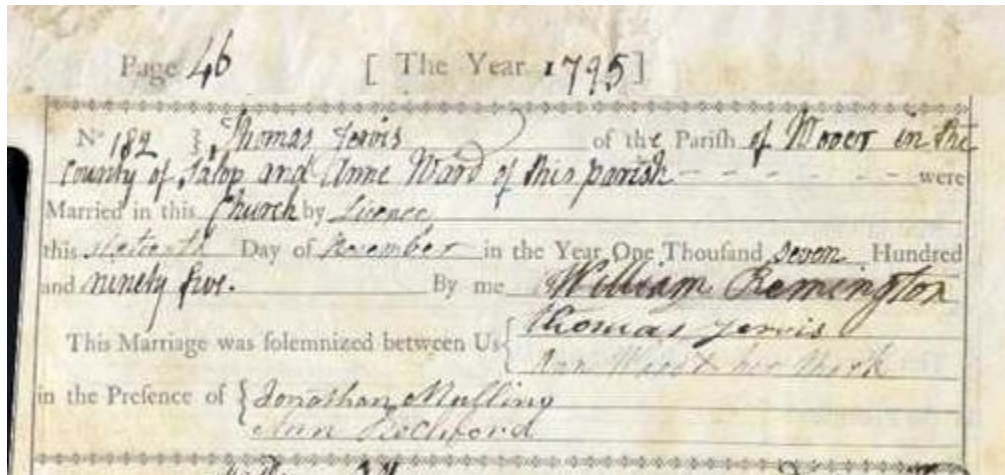 Page 46 [ The Year 1795 ]
No 182 } Thomas Jervis of the Parish of Woore in the
County of Salop and Anne Ward of this parish - - - - - - were
Married in this Church by Licence
this sixteenth Day of November in the Year One Thousand seven Hundred
and ninety five. By me William Remington
This Marriage was solemnized between Us { Thomas Jervis
Ann Ward her Mark
in the Presence of { Jonathan Malling
Ann Rochford